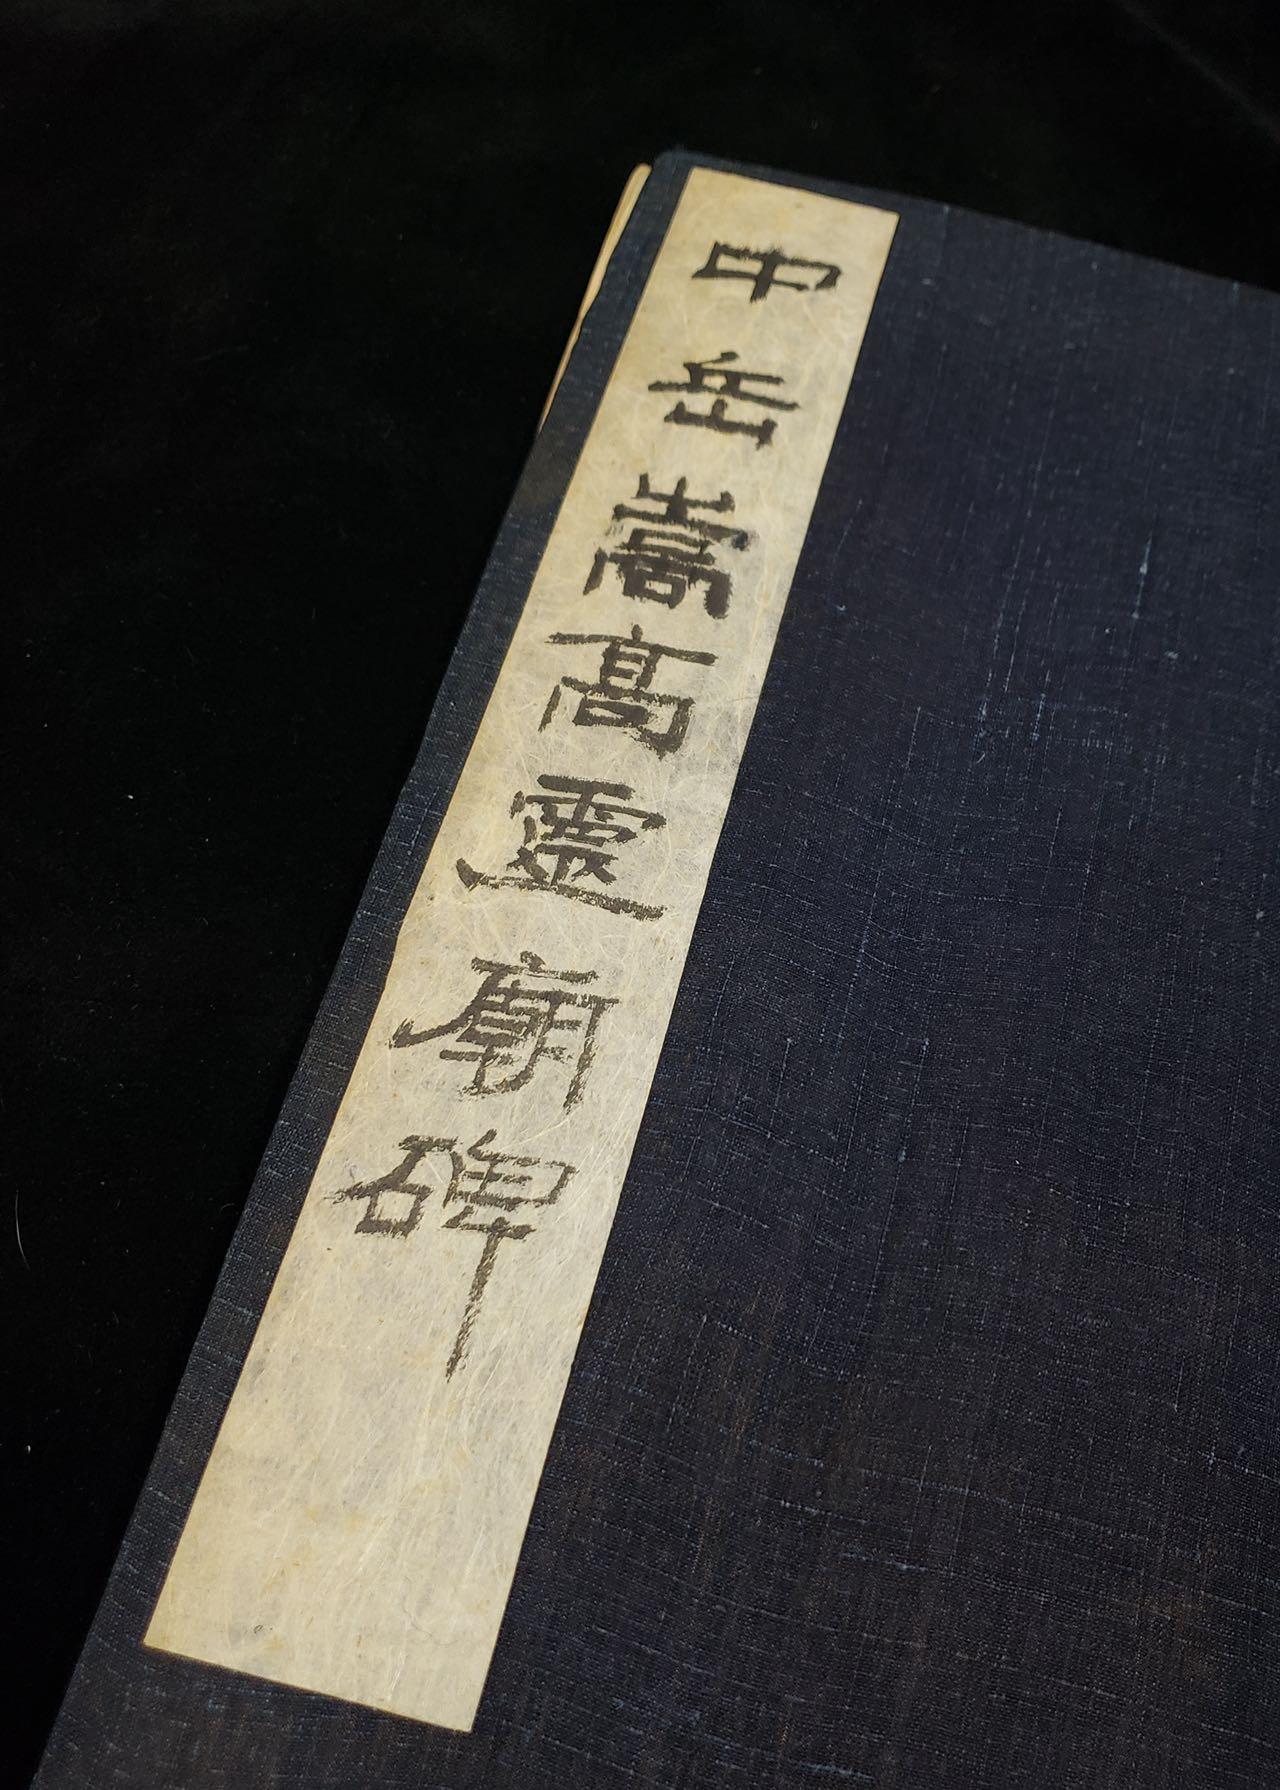 中岳嵩高靈廟碑